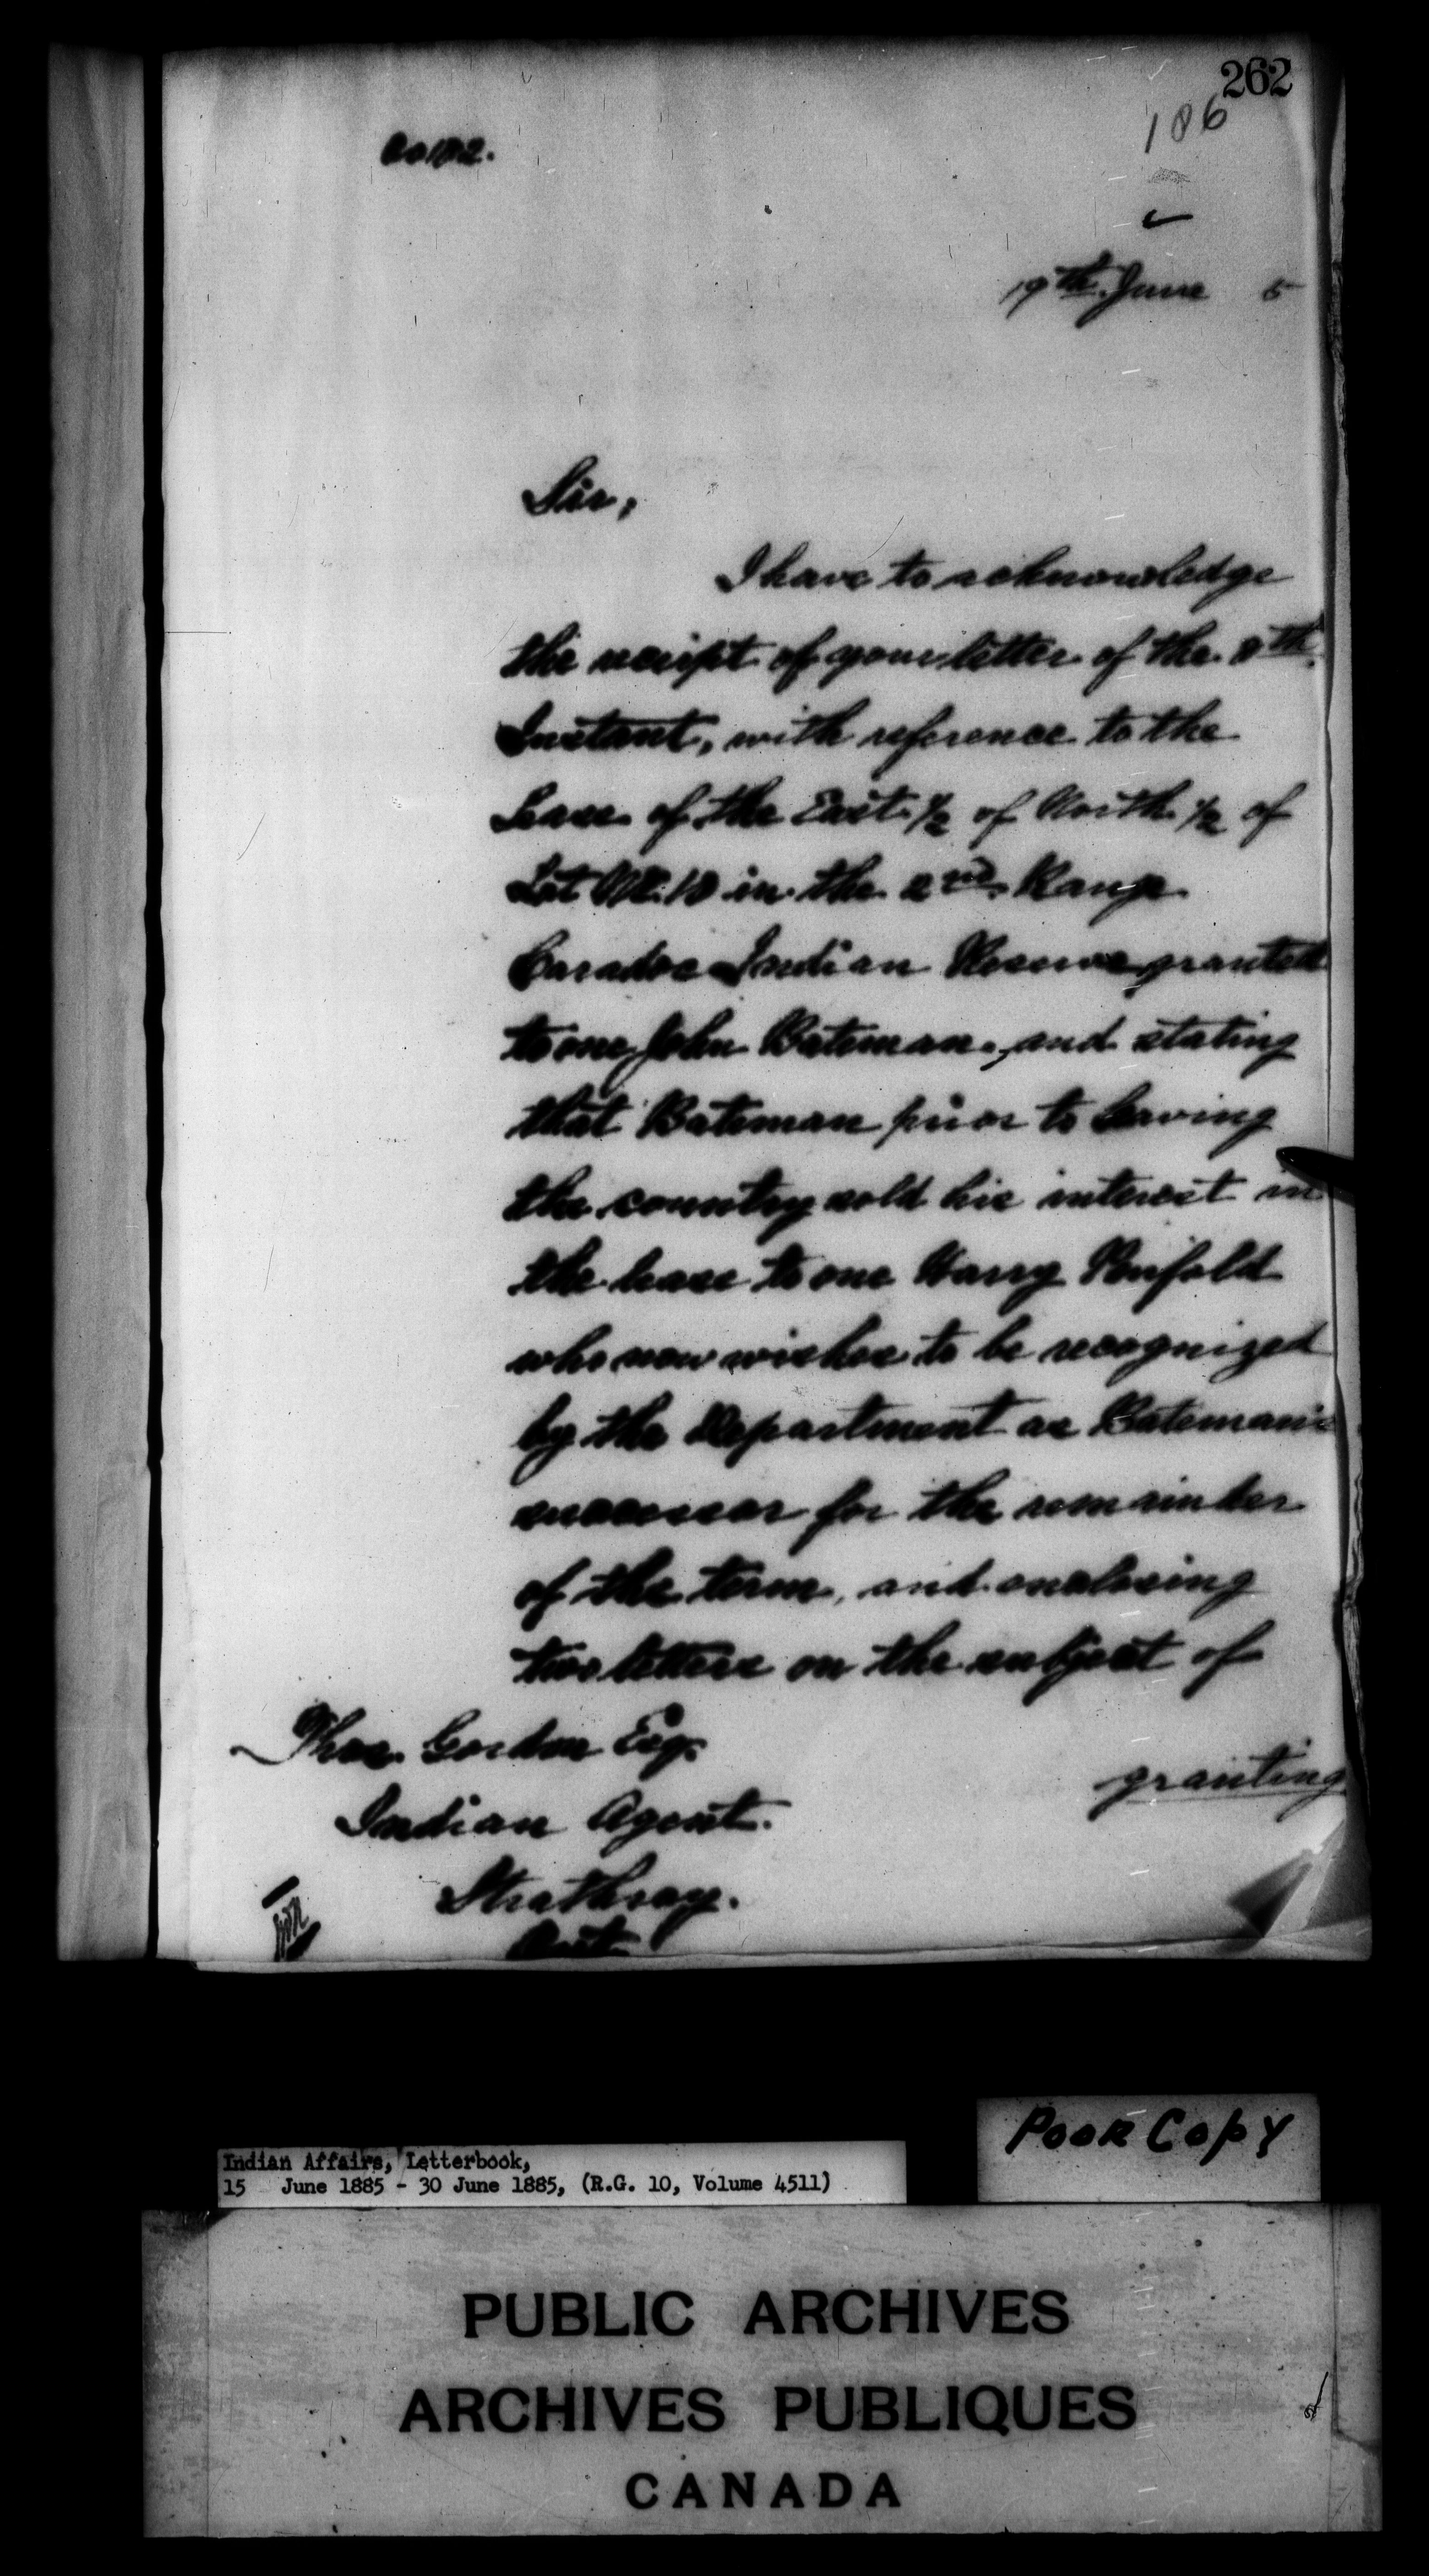 262
186
19th June 5
Sir,
I have to acknowledge
the receipt of your letter of the 8th
Instant, with reference to the
Lease of the East 1/2 of North 1/2 of
Lot No. 18 in the 2nd Range
Caradoc Indian Reserve granted
to one John Bateman, and stating
that Bateman prior to leaving
the country sold his interest in
the lease to one Harry Penfold
who now wishes to be recognized
by the Department as Bateman's
successor for the remainder
of the term, and enclosing
two letters on the subject of
granting
Thos. Gordon Esq.
Indian Agent.
Strathroy.
Ont.
Poor Copy
Indian Affairs, Letterbook,
15 June 1885 - 30 June 1885, (R.G. 10, Volume 4511)
PUBLIC ARCHIVES
ARCHIVES PUBLIQUES
CANADA